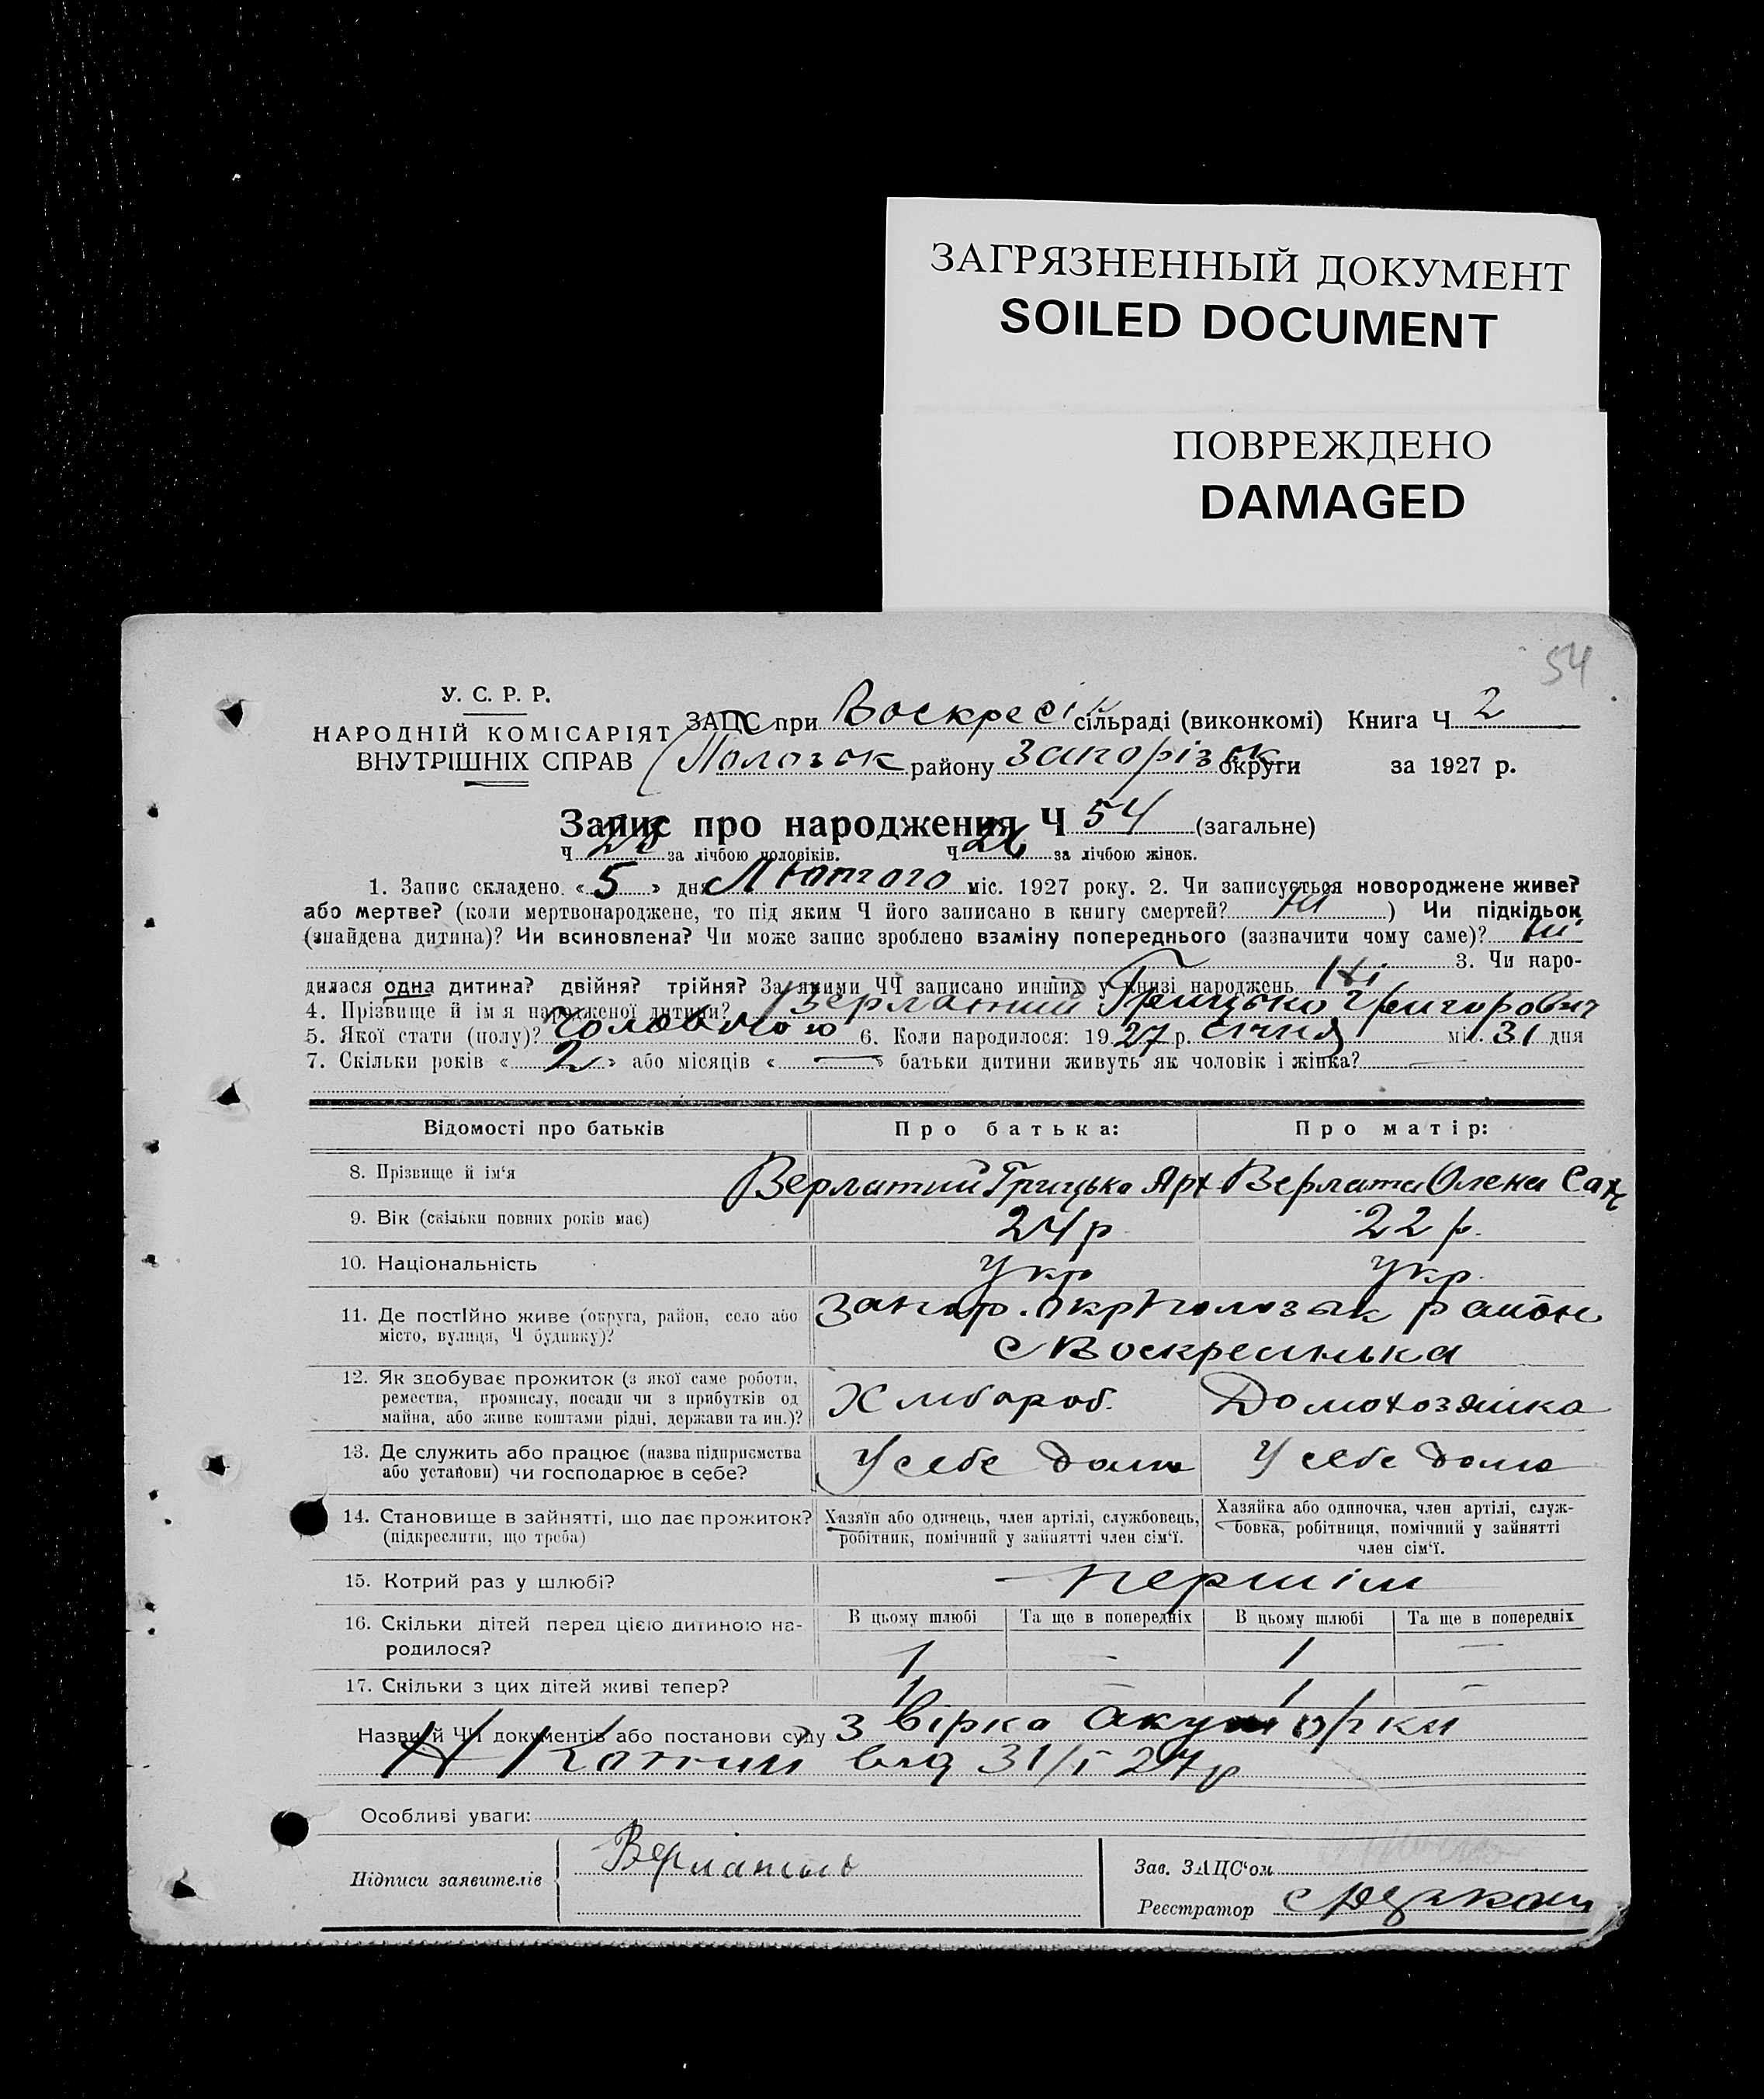 ЗАГРЯЗНЕННЫЙ ДОКУМЕНТ
SOILED DOCUMENT
ПОВРЕЖДЕНО
DAMAGED
54
У. С. Р. Р.
НАРОДНІЙ КОМІСАРІЯТ
ВНУТРІШНІХ СПРАВ
ЗАЦС при Воскресік сільраді (виконкомі) Книга Ч 2
Пологок району Запорізьк округи за 1927 р.
Запис про народження Ч 54 (загальне)
Ч 28 за лічбою чоловіків. Ч 26 за лічбою жінок.
1. Запис складено «5» дня Лютого міс. 1927 року. 2. Чи записується новороджене живе?
або мертве? (коли мертвонароджене, то під яким Ч його записано в книгу смертей? ні ) Чи підкідьок
(знайдена дитина)? Чи всиновлена? Чи може запис зроблено взаміну попереднього (зазначити чому саме)? ні
3. Чи наро-
дилася одна дитина? двійня? трійня? За якими ЧЧ записано инших у книзі народжень Ні
4. Прізвище й ім'я народженої дитини? Верлатий Грицько Григорович
5. Якої стати (полу)? Чоловічою 6. Коли народилося: 1927 р. січня міс. 31 дня
7. Скільки років «2» або місяців «—» батьки дитини живуть як чоловік і жінка? —
Відомості про батьків Про батька: Про матір:
8. Прізвище й ім'я Верлатий Грицько Арх Верлата Олена
9. Вік (скільки повних років має) 24 р 22 р.
10. Національність Укр Укр.
11. Де постійно живе (округа, район, село або місто, вулиця, Ч будинку)? Запор. окр Пологзьк район
с Воскресенька
12. Як здобуває прожиток (з якої саме роботи, ремества, промислу, посади чи з прибутків од майна, або живе коштами рідні, держави та ин.)? Хлібороб. Домохозяйка
13. Де служить або працює (назва підприємства або установи) чи господарює в себе? У себе дома У себе дома
14. Становище в зайнятті, що дає прожиток? (підкреслити, що треба)
Хазяїн або одинець, член артілі, службовець, робітник, помічний у зайнятті член сім'ї.
Хазяйка або одиночка, член артілі, служ-
бовка, робітниця, помічний у зайнятті
член сім'ї.
15. Котрий раз у шлюбі? першім
16. Скільки дітей перед цією дитиною народилося? В цьому шлюбі Та ще в попередніх В цьому шлюбі Та ще в попередніх
1 - 1 —
17. Скільки з цих дітей живі тепер? 1 — 1 -
Назви й ЧЧ документів або постанови суду Звірка акушорки
від 31/I 27р
Особливі уваги:
Підписи заявителів Зав. ЗАЦС'ом
Реєстратор